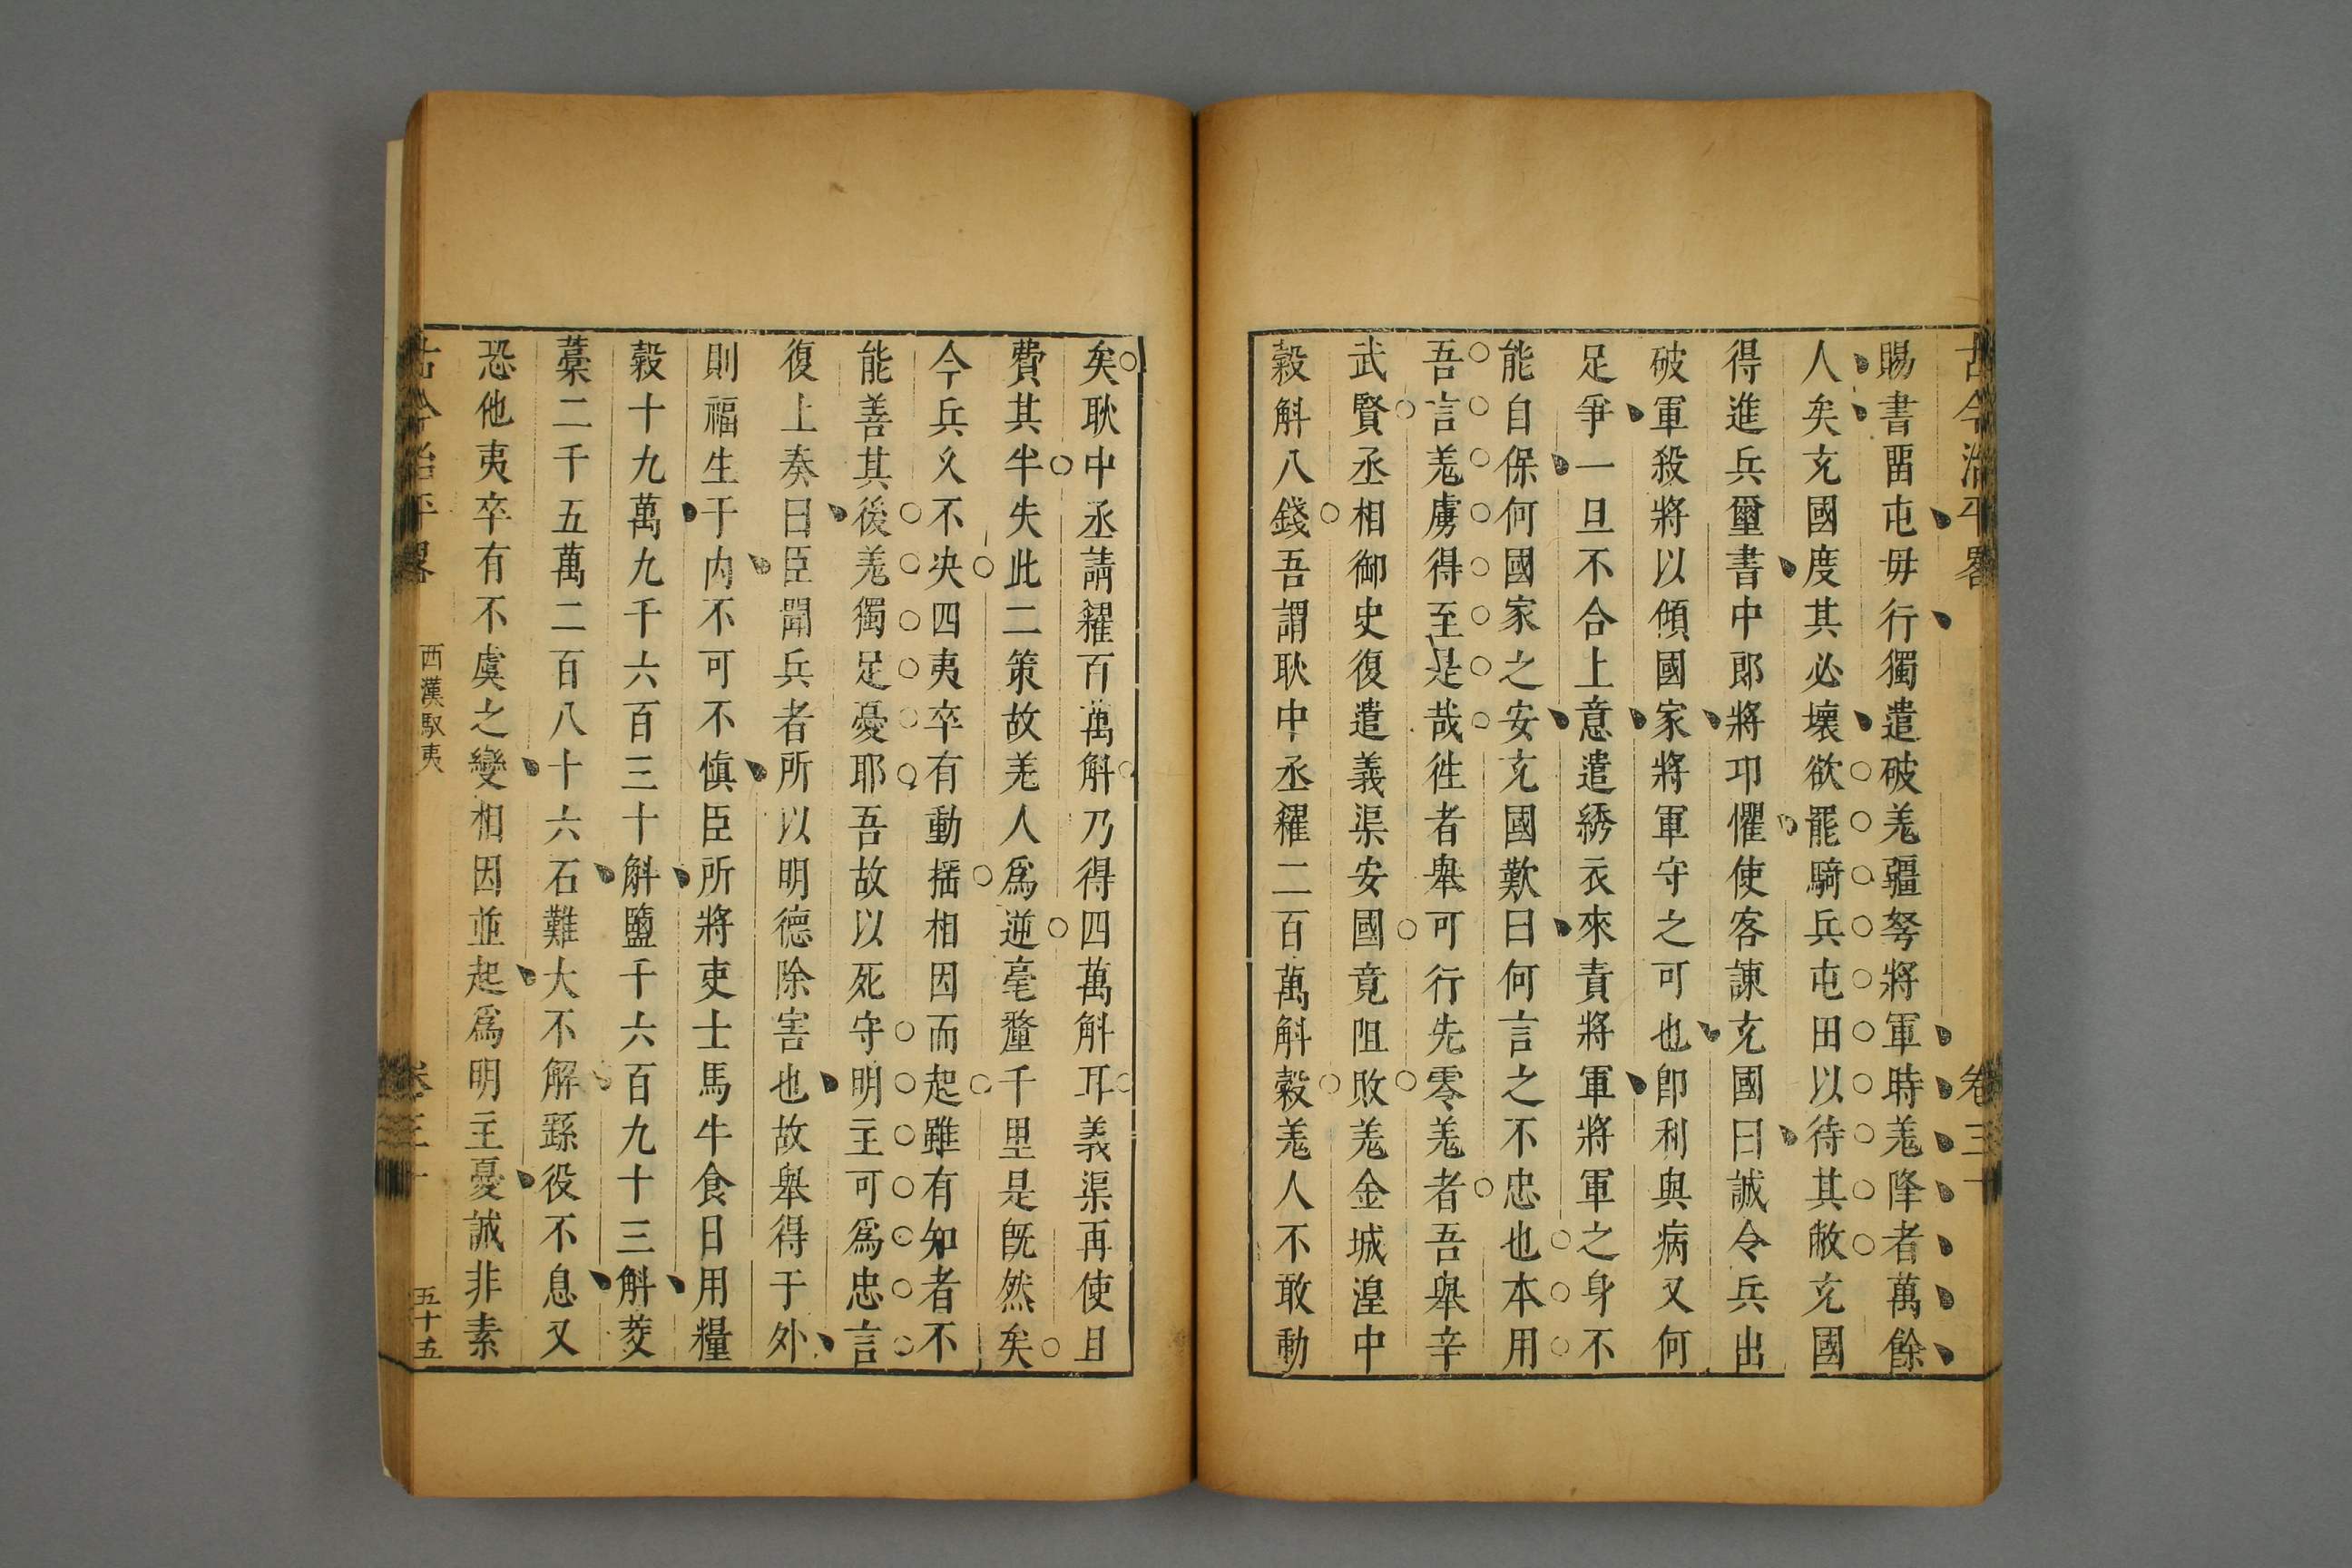 古今治平畧 卷三十
賜書畱屯毋行獨遣破羌彊弩將軍時羌降者萬餘
人矣充國度其必壞欲罷騎兵屯田以待其敝充國
得進兵璽書中郎將卬懼使客諫充國曰誠令兵出
破軍殺將以傾國家將軍守之可也卽利與病又何
足爭一旦不合上意遣綉衣來責將軍將軍之身不
能自保何國家之安充國歎曰何言之不忠也本用
吾言羌虜得至是哉徃者舉可行先零羌者吾舉辛
武賢丞相御史復遣義渠安國竟阻敗羌金城湟中
穀斛八錢吾謂耿中丞糴二百萬斛穀羌人不敢動
矣耿中丞請糴百萬斛乃得四萬斛耳義渠再使且
費其半失此二策故羌人爲逆毫釐千里是旣然矣
今兵久不决四夷卒有動搖相因而起雖有知者不
能善其後羌獨足憂耶吾故以死守明主可爲忠言
復上奏曰臣聞兵者所以明德除害也故舉得于外
則福生于内不可不慎臣所將吏士馬牛食日用糧
穀十九萬九千六百三十斛鹽千六百九十三斛茭
藁二千五萬二百八十六石難大不解繇役不息又
恐他夷卒有不虞之變相因並起爲明主憂誠非素
古今治平畧 西漢馭夷 卷三十 五十五